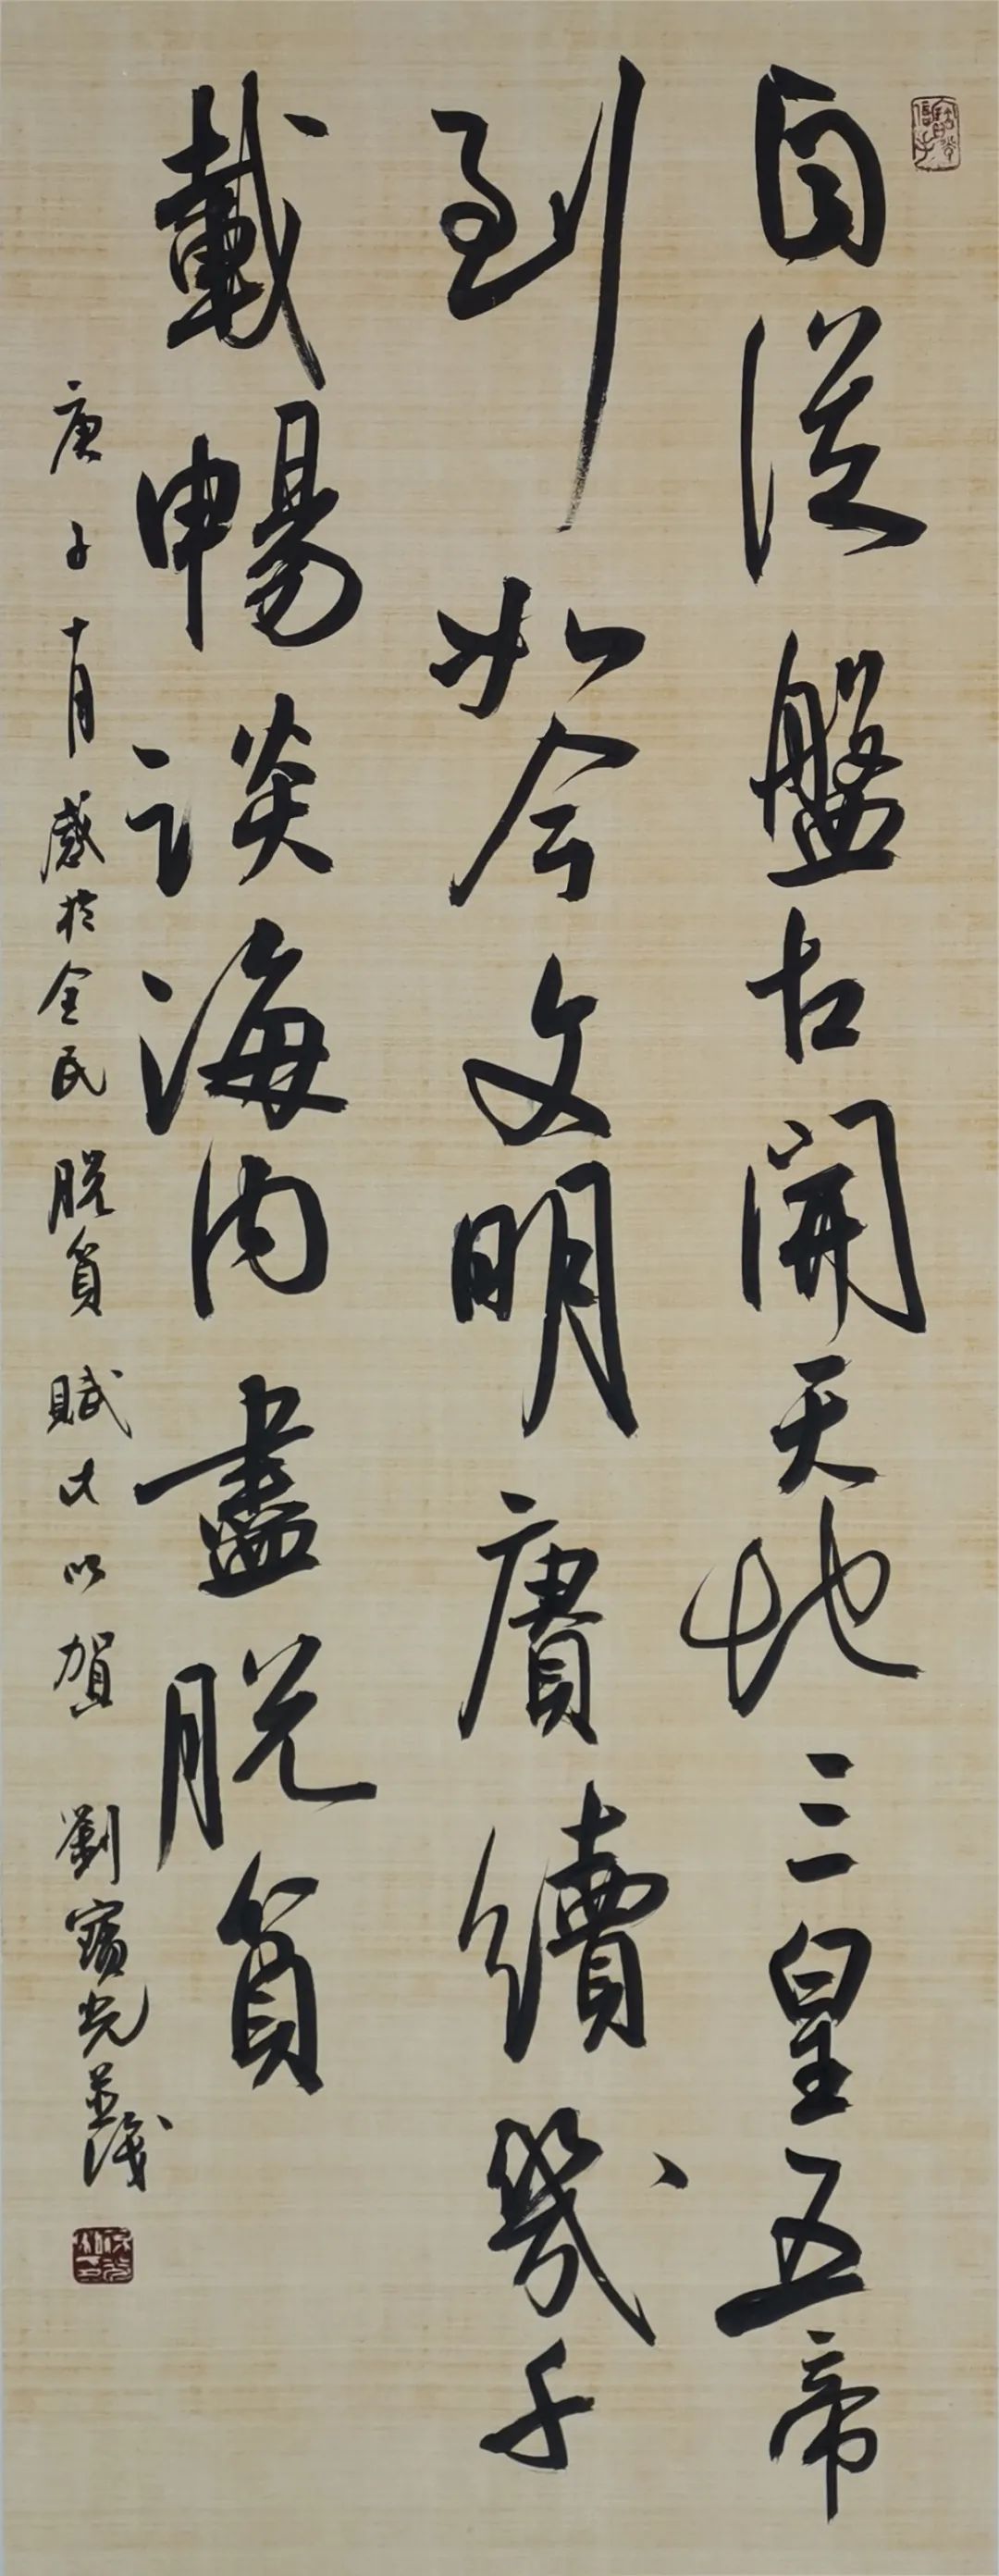 自從盤古開天地三皇五帝
到如今文明賡續幾千
載暢談海內盡脫貧
庚子十月感於全民脫貧賦此以賀 劉寶光並識